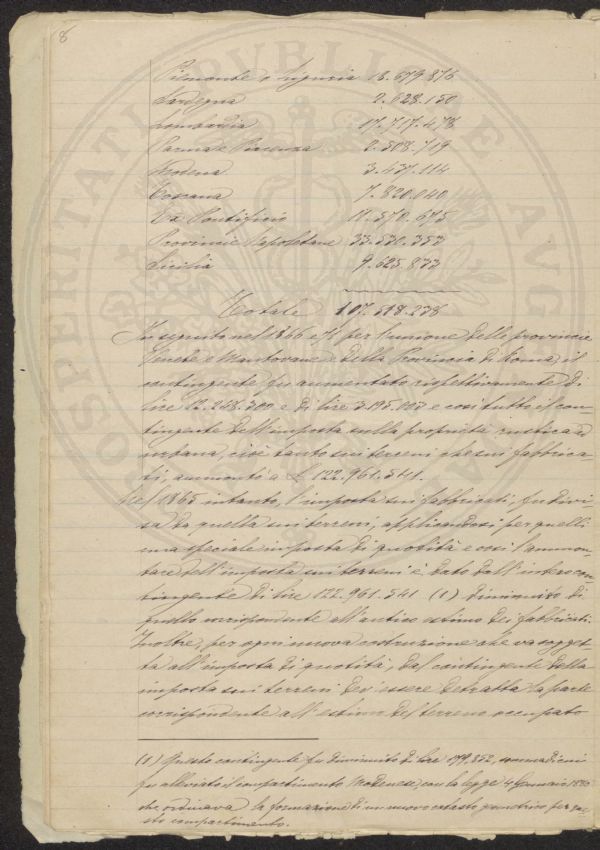 8
Piemonte e Liguria 18.679.876
Sardegna 2.628.150
Lombardia 17.717.478
Parma e Piacenza 2.508.719
Modena 3.437.114
Toscana 7.820.040
Ex Pontificio 11.570.675
Provincie Napoletane 33.530.353
Sicilia 9.625.833
Totale 107.518.238
In seguito nel 1866 e 70 per l'unione delle provincie
Venete e Mantovane e della Provincia di Roma, il
contingente fu aumentato rispettivamente di
lire 12.248.300 e di lire 3.195.003 e così tutto il con-
tingente dell'imposta sulla proprietà rustica ed
urbana, cioè tanto sui terreni che sui fabbrica-
ti, aumontò a £ 122.961.541.
Nel 1865 intanto, l'imposta sui fabbricati, fu divi-
sa da quella sui terreni, applicandosi per quelli
una speciale imposta di quotità e così l'ammon-
tare dell'imposta sui terreni è dato dall'intero con-
tingente di lire 122.961.541 (1) diminuito di
quello corrispondente all'antico estimo dei fabbricati.
Inoltre, per ogni nuova costruzione che va sogget-
ta all'imposta di quotità, dal contingente della
imposta sui terreni dev'essere detratta la parte
corrispondente all'estimo del terreno occupato
(1) Questo contingente fu diminuito di lire 179.352, somma di cui
fu alleviato il compartimento Modenese, con la legge 4 Gennaio 1880
che ordinava la formazione di un nuovo catasto geometrico per que-
sto compartimento.
PROSPERITATI PVBLICAE AVG